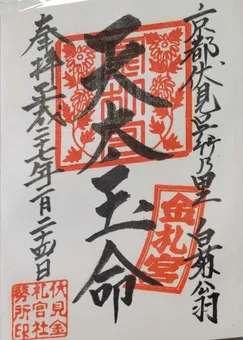 京都伏見呉竹乃里 白菊翁
金札宮
天太玉命
奉拝 平成二七年一月二十五日
伏見金
札宮社
務所印